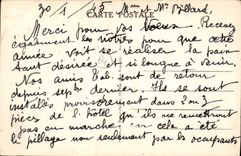 30/1/45 Mme et Mr
CARTE POSTALE
Merci pour vos voeux Recevez
également les nôtres pour que cette
année voit se réaliser la paix
tant désirée et si longue à venir.
Nos amis sont de retour
depuis septbre dernier. Ils se sont
installés provisoirement dans 2 ou 3
pièces de l'hôtel qu'ils ne remettront
pas en marche car cela a été
le pillage non seulement par les occupants